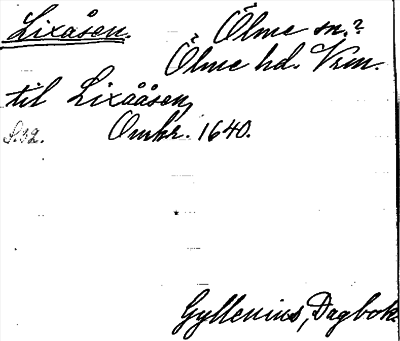 Lixåsen. Ölme sn.?
Ölme hd. Vrm.
til Lixååsen,
S.32. Omkr. 1640.
Gyllenius, Dagbok.